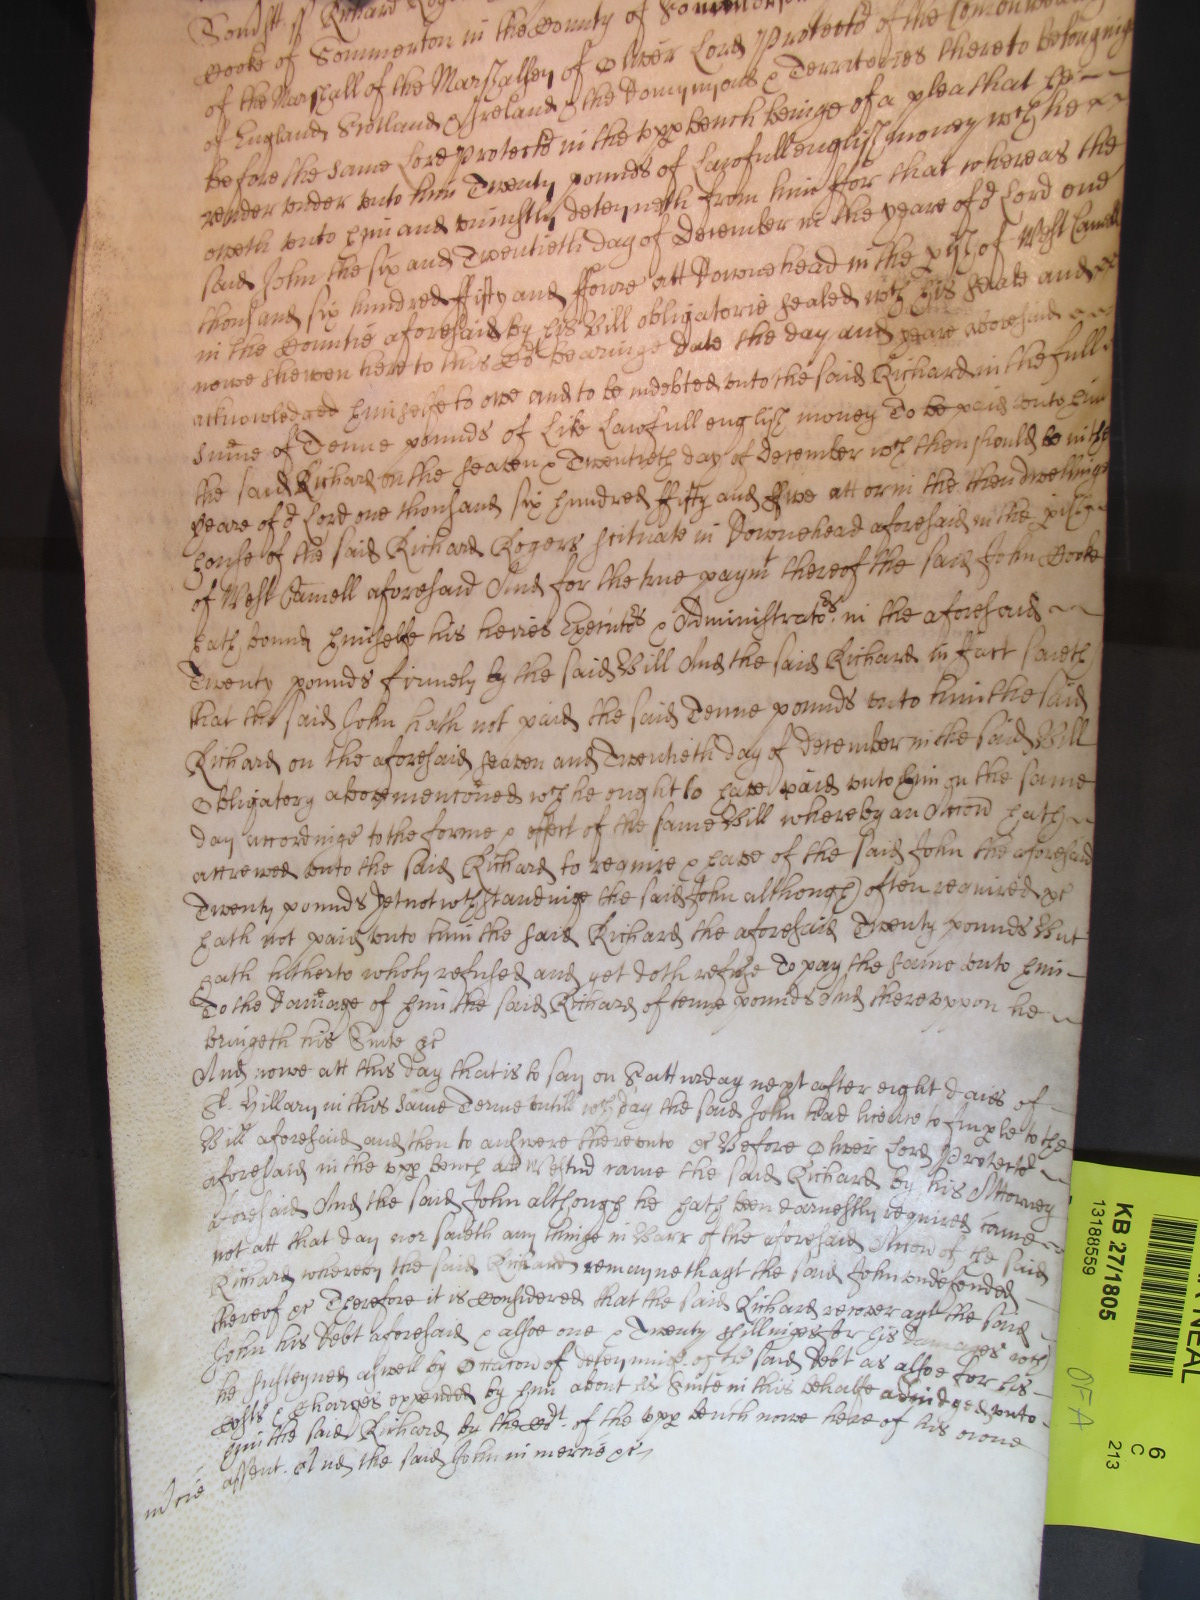 Somsett ss Richard Rog
Cooke of Sommerton in the County of Somersett
of the Marshall of the Marshalsey of Oliver Lord Protector of the Comonwealth
of England Scotland & Ireland & the Dominions & Territories thereto belonginge
before the same Lord Protector in the upp bench beinge of a plea that he
render vnto him Twenty pounds of Lawfull english money wch he
oweth vnto him and viniustly deteyneth from him ffor that whereas the
said John the six and Twentieth day of December in the yeare of or Lord one
thousand six hundred ffifty and ffowre att Downehead in the pish of West Camell
in the Countie aforesaid by his Bill obligatorie sealed wth his Seale and
nowe shewen here to this Cort bearinge date the day and yeare abovesaid
acknowledged himselfe to owe and to be indebted vnto the said Richard in the full
sume of Tenne pounds of Like Lawfull english money To be paid vnto him
the said Richard on the seaven & Twentieth day of December wch then should be in the
yeare of or Lord one thousand six hundred ffifty and ffive att or in the then dwellinge
house of the said Richard Rogers scituate in Downehead aforesaid in the pish
of West Camell aforesaid And for the true paymt thereof the said John Cooke
hath bound himselfe his heires Executors & Administrators in the aforesaid
Twenty pounds firmely by the said Bill And the said Richard in fact saieth
that the said John hath not paid the said Tenne pounds vnto him the said
Richard on the aforesaid seaven and Twentieth day of December in the said Bill
Obligatory abovementioned wch he ought to have paid vnto him on the same
day accordinge to the forme & effect of the same Bill whereby an Accon hath
accrewed vnto the said Richard to require & have of the said John the aforesaid
Twenty pounds Yet notwthstandinge the said John although often required &c
hath not paid vnto him the said Richard the aforesaid Twenty pounds But
hath hitherto wholy refused and yet doth refuse To pay the same vnto him
To the Damage of him the said Richard of tenne pounds And therevppon he
bringeth his Suite &c
And nowe att this day that is to say on Satturday next after eight daies of
St. Hillary in this same Terme vntill wch day the said John had licence to Imple to the
Bill aforesaid and then to answere therevnto &c Before Oliver Lord Protector
aforesaid in the upp bench att Westm came the said Richard by his Attorney
aforesaid And the said John although he hath been earnestly required came
not att that day nor saieth any thinge in Barr of the aforesaid Accon of the said
Richard whereby the said Richard remayneth agt the said John vndefended
thereof &c Therefore it is Considered that the said Richard recover agt the said
John his Debt aforesaid & alsoe one & Twenty shillinges for his damages wch
he susteyned aswell by Occacon of deteyninge of the said Debt as alsoe for his
Costs & Charges expended by him about his Suite in this behalfe adiudged vnto
him the said Richard by the Cort of the upp bench nowe here of his owne
assent. And the said John in mercie &c
mercie
KB 27/1805
13188559
6
C
213